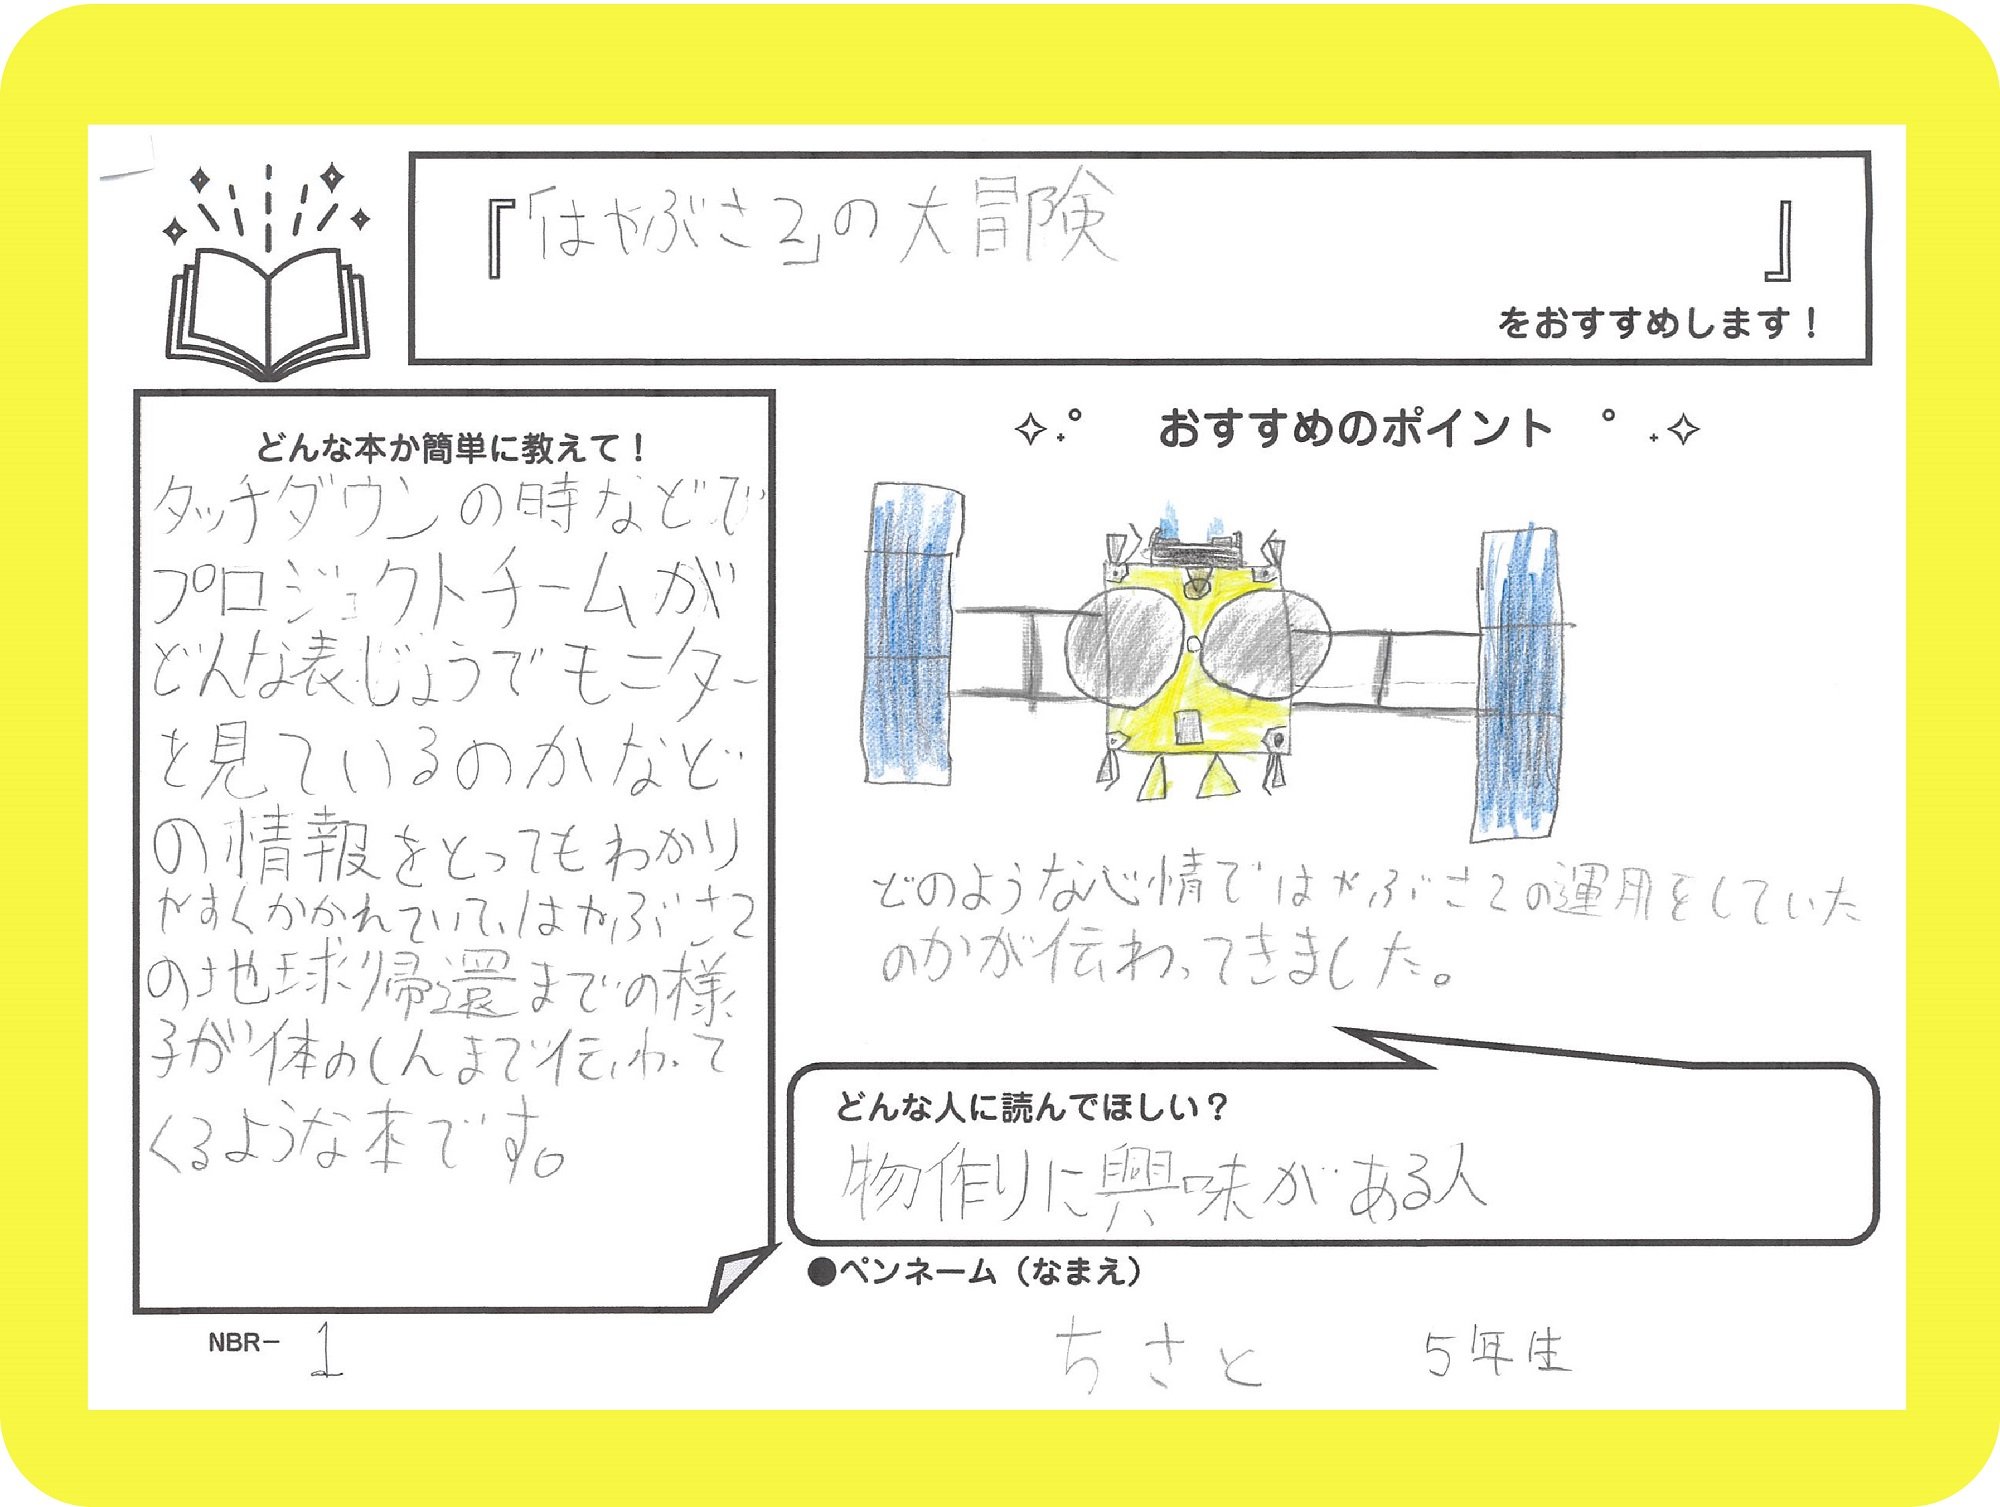 『「はやぶさ2」の大冒険』
をおすすめします！
どんな本か簡単に教えて！
タッチダウンの時などで
プロジェクトチームが
どんな表じょうでモニター
を見ているのかなど
の情報をとってもわかり
やすくかかれていて、はやぶさ2
の地球帰還までの様
子が体のしんまで伝わって
くるような本です。
おすすめのポイント
どのような心情ではやぶさ2の運用をしていた
のかが伝わってきました。
どんな人に読んでほしい？
物作りに興味がある人
●ペンネーム（なまえ）
ちさと 5年生
NBR− 1